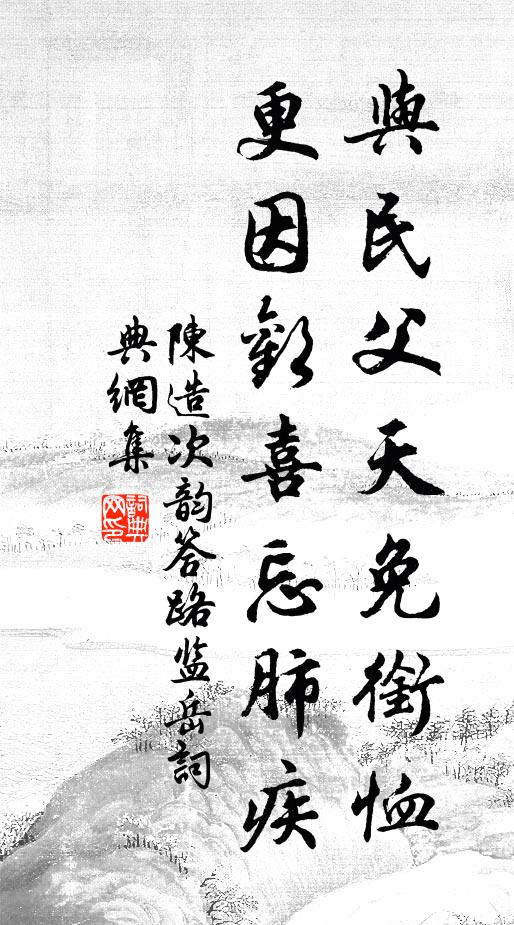 與民父天免銜恤
更因歡喜忘肺疾
陳造次韵答路监岳詞
典網集
詞典
网印